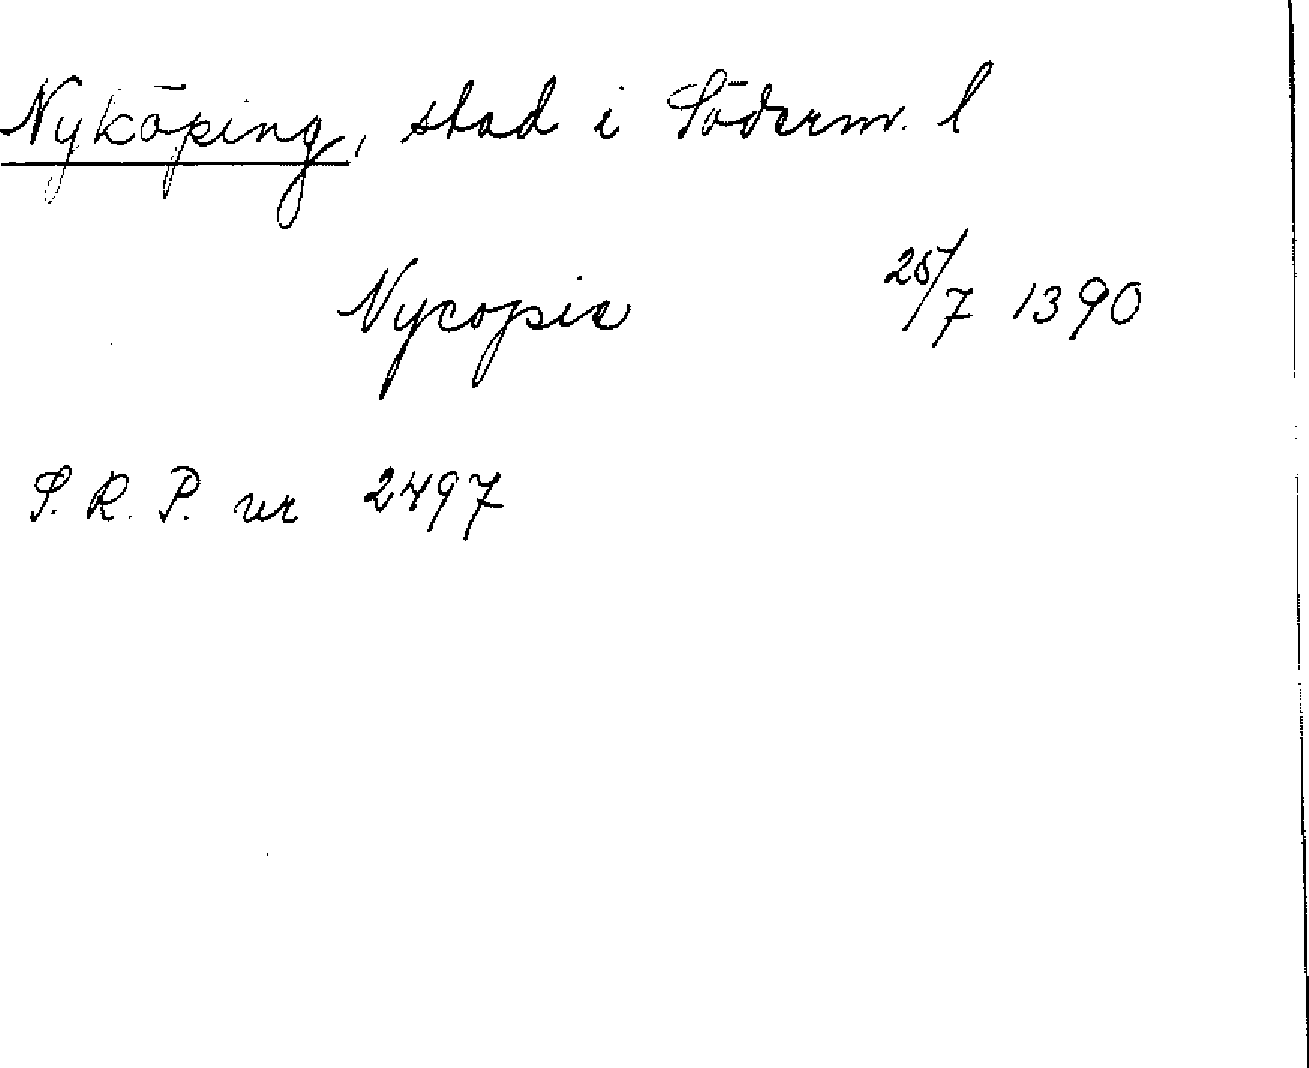 Nyköping, stad i Söderm. l
Nycopie 25/7 1390
S. R. P. nr 2497